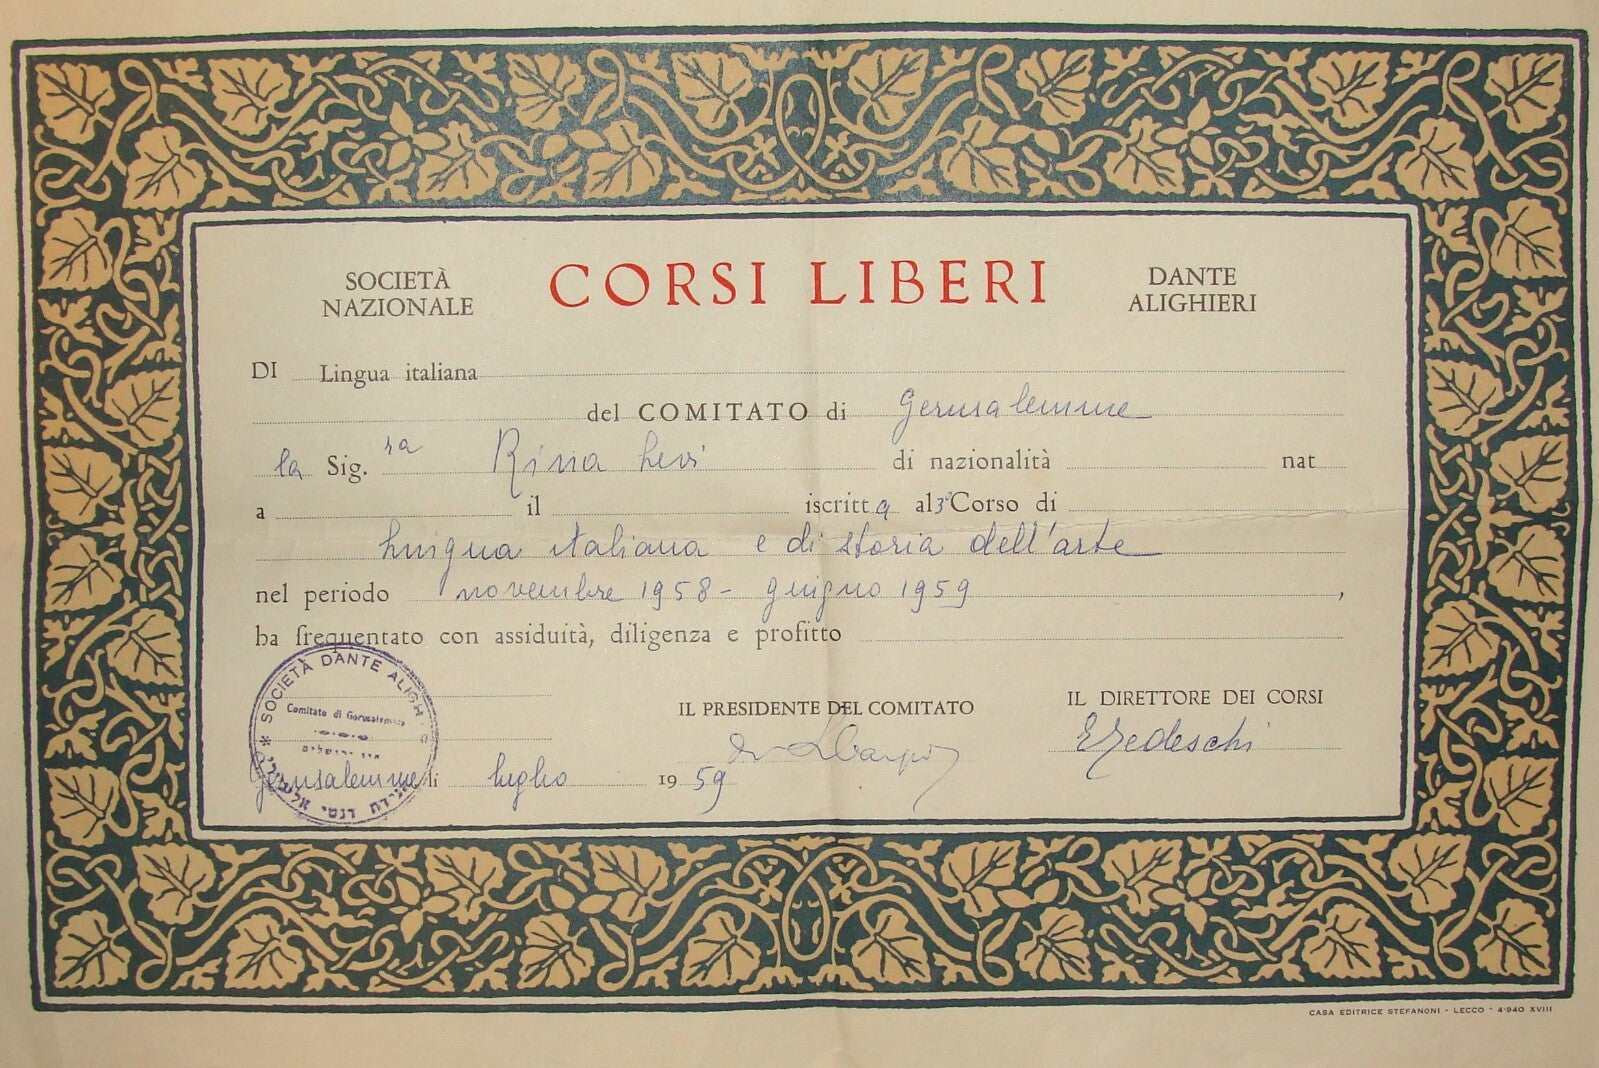 SOCIETÀ NAZIONALE
CORSI LIBERI
DANTE ALIGHIERI
DI Lingua italiana
del COMITATO di Gerusalemme
la Sig.ra Rina Levi di nazionalità nat
a il iscritta al 3° Corso di
Lingua italiana e di storia dell'arte
nel periodo novembre 1958 - giugno 1959,
ha frequentato con assiduità, diligenza e profitto
SOCIETÀ DANTE ALIGH
Comitato di Gerusalemme
IL PRESIDENTE DEL COMITATO
IL DIRETTORE DEI CORSI
ETedeschi
Gerusalemme li luglio 1959
CASA EDITRICE STEFANONI - LECCO - 4-940 XVIII